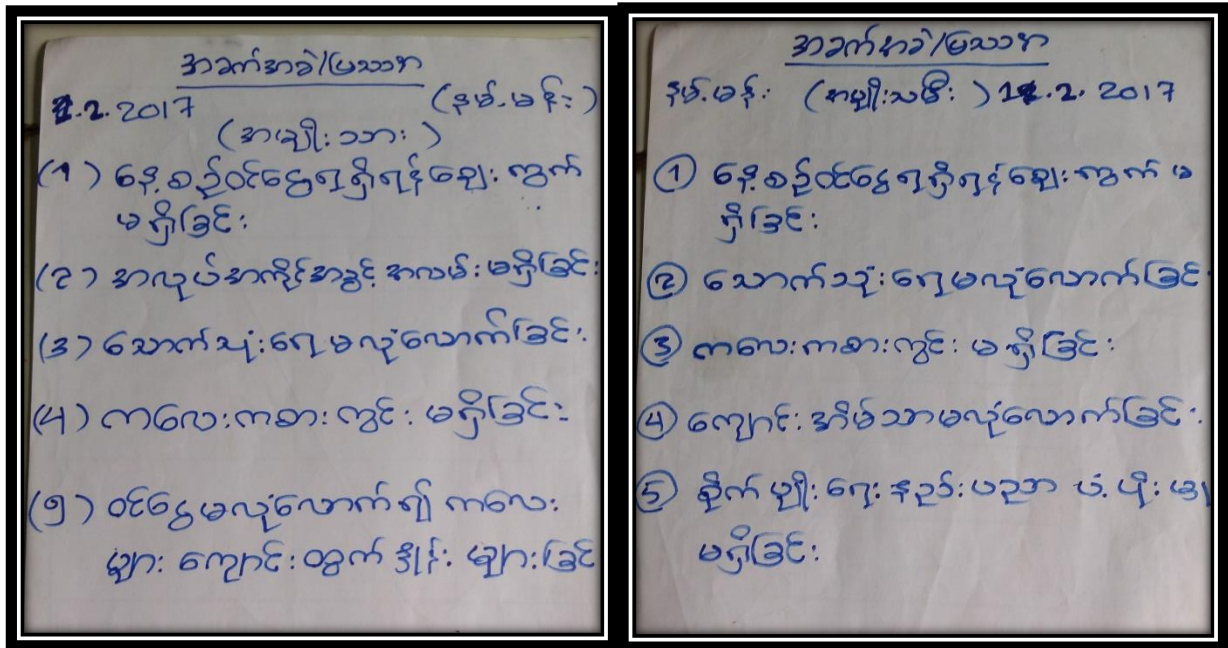 အခက်အခဲ/ပြဿနာ
2.2.2017 (နမ့်.မန်း)
(အမျိုးသား)
(၁) နေ့စဉ်ဝင်ငွေရရှိရန်ဈေးကွက်
မရှိခြင်း
(၂) အလုပ်အကိုင်အခွင့်အလမ်းမရှိခြင်း
(၃) သောက်သုံးရေမလုံလောက်ခြင်း
(၄) ကလေးကစားကွင်းမရှိခြင်း
(၅) ဝင်ငွေမလုံလောက်၍ ကလေး
များ ကျောင်းထွက်နှုန်း များခြင်း
အခက်အခဲ/ပြဿနာ
နမ့်.မန်း (အမျိုးသမီး) 2. 2017
① နေ့စဉ်ဝင်ငွေရရှိရန်ဈေးကွက် မ
ရှိခြင်း
② သောက်သုံးရေမလုံလောက်ခြင်း
③ ကလေးကစားကွင်း မရှိခြင်း
④ ကျောင်းအိမ်သာမလုံလောက်ခြင်း
⑤ စိုက်ပျိုးရေးနည်းပညာ ပံ့ပိုးမှု
မရှိခြင်း